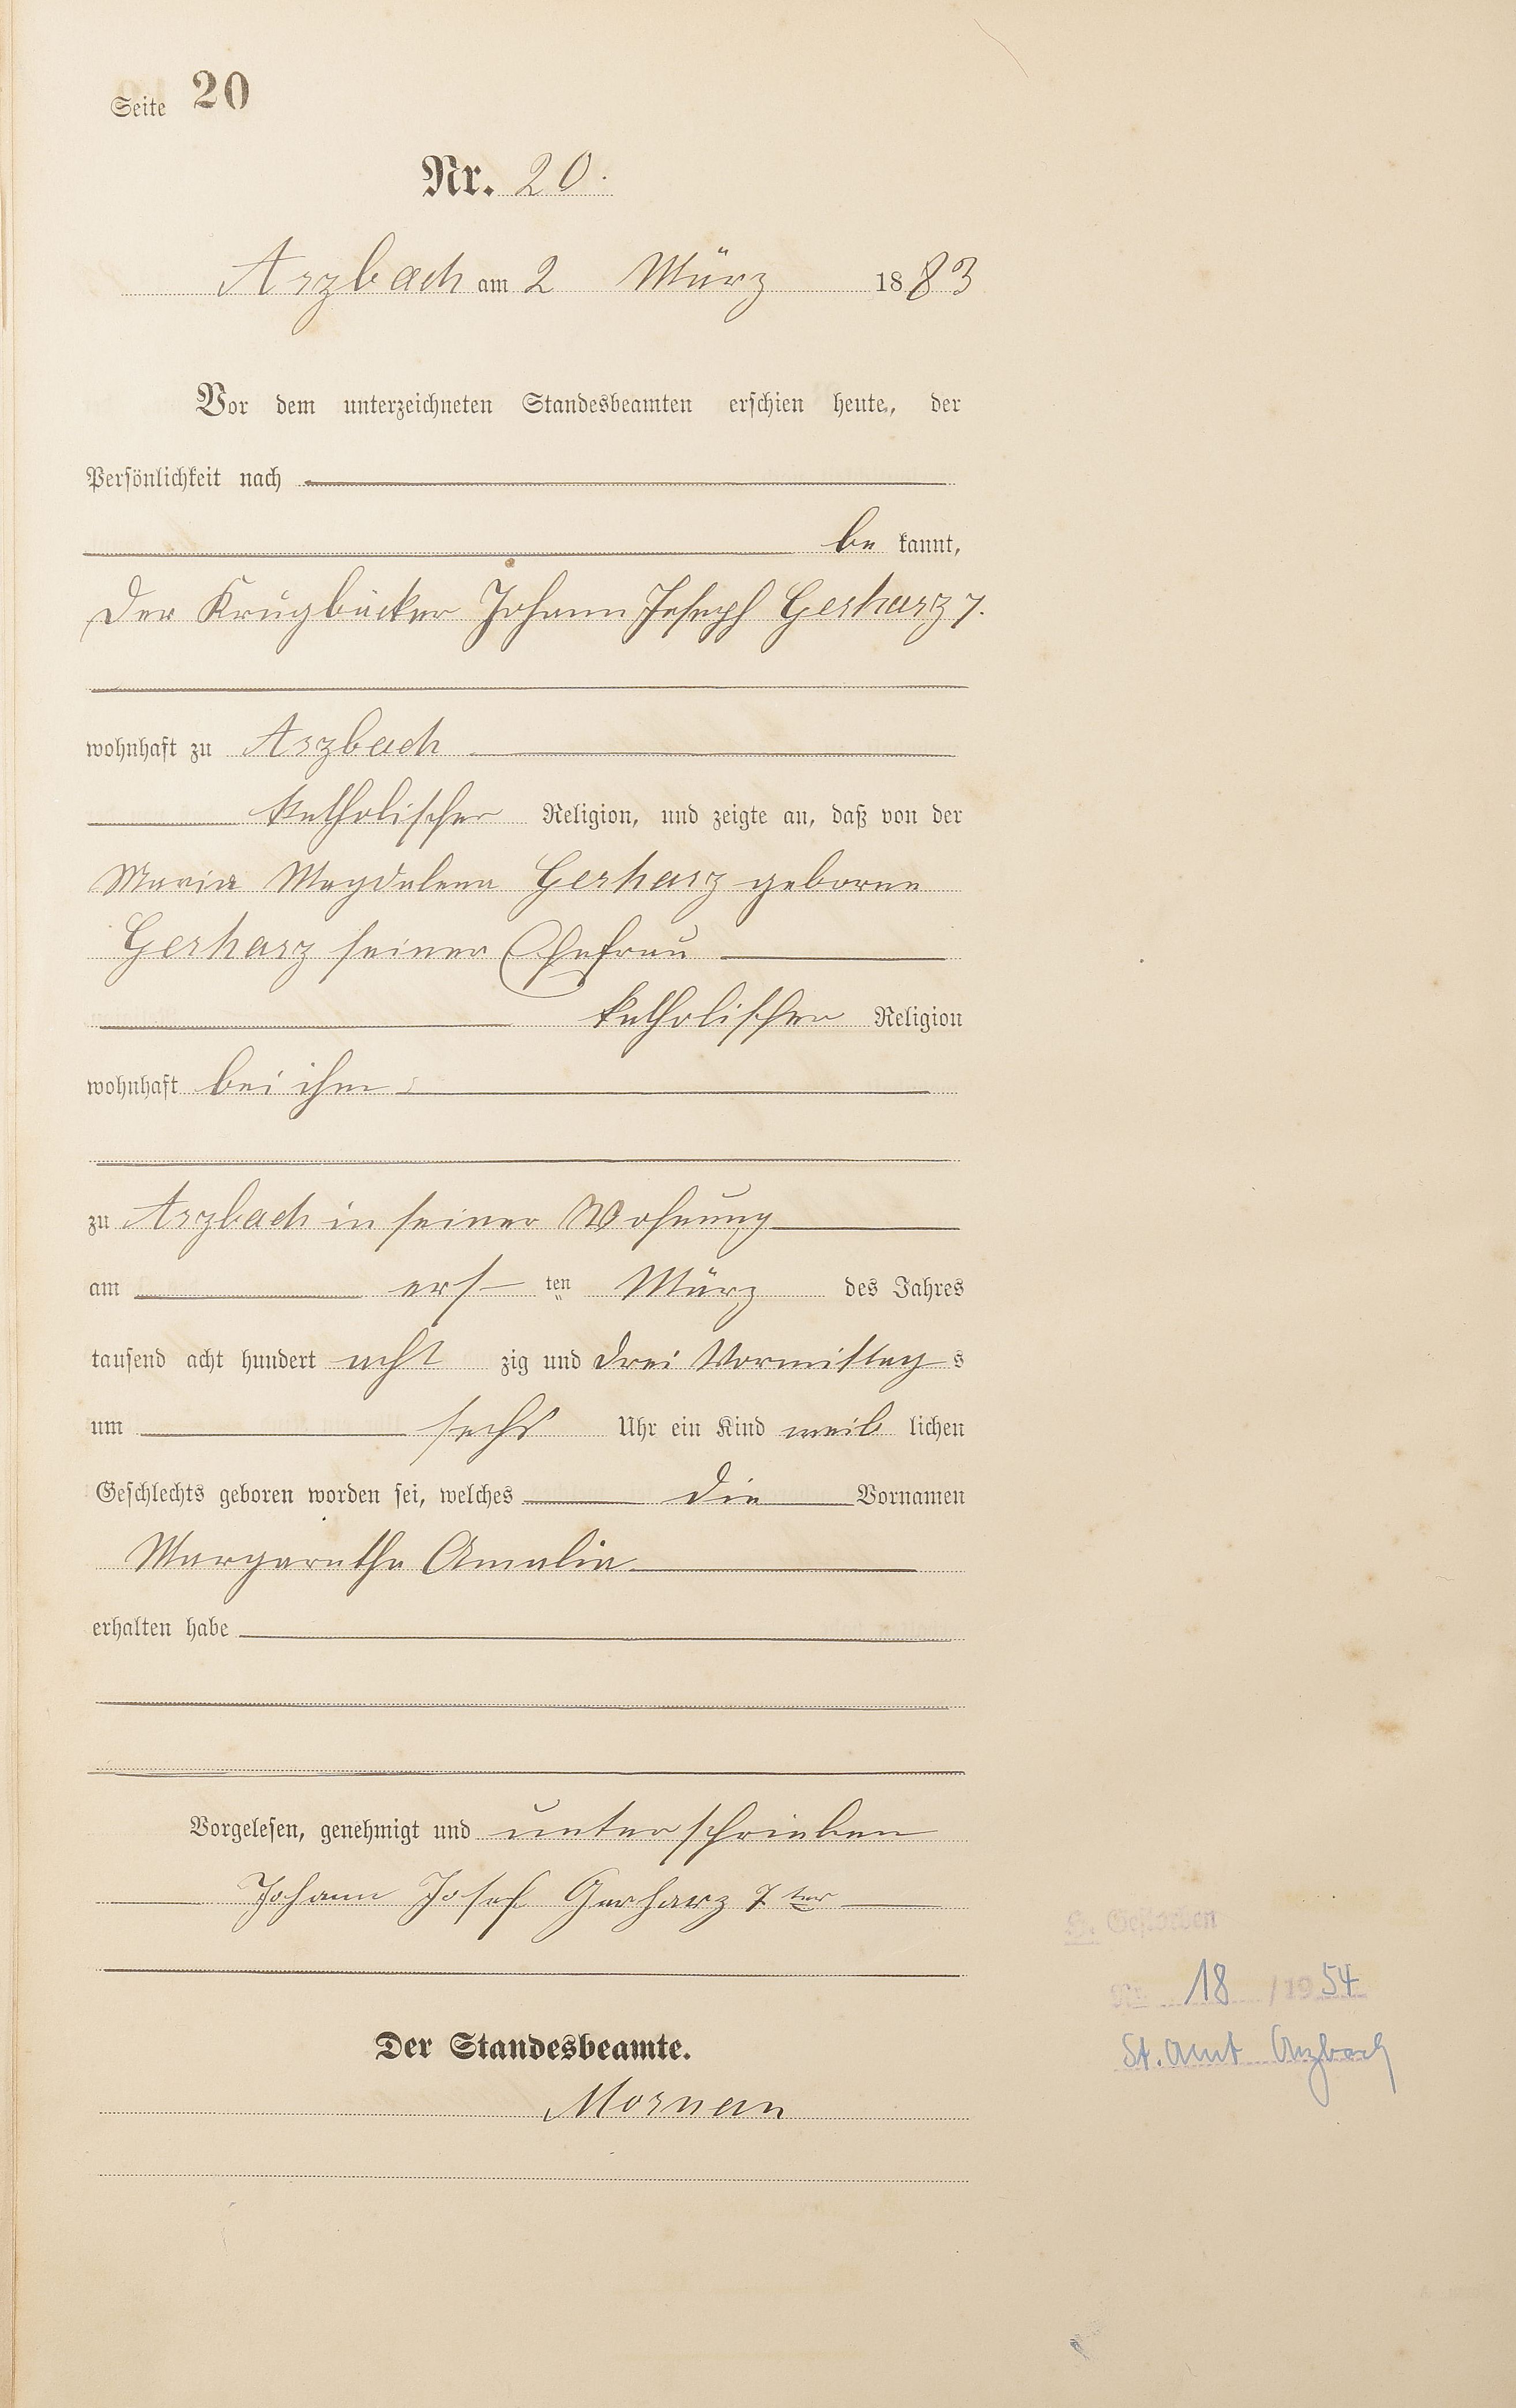 Seite 20
Nr. 20.
Arzbach am 2 März 1883
Vor dem unterzeichneten Standesbeamten erschien heute, der
Persönlichkeit nach
be kannt,
Der Krugbäcker Johann Joseph Gerharz 7.
wohnhaft zu Arzbach
katholischer Religion, und zeigte an, daß von der
Maria Magdalena Gerharz geborne
Gerharz seiner Ehefrau
katholischer Religion
wohnhaft bei ihm
zu Arzbach in seiner Wohnung
am ers ten März des Jahres
tausend acht hundert acht zig und drei Vormittag s
um sechs Uhr ein Kind weib lichen
Geschlechts geboren worden sei, welches die Vornamen
Margaretha Amalia
erhalten habe
Vorgelesen, genehmigt und unterschrieben
Johann Josef Gerharz 7ter
H. Gestorben
Nr. 18 /1954
St. Amt Arzbach
Der Standesbeamte.